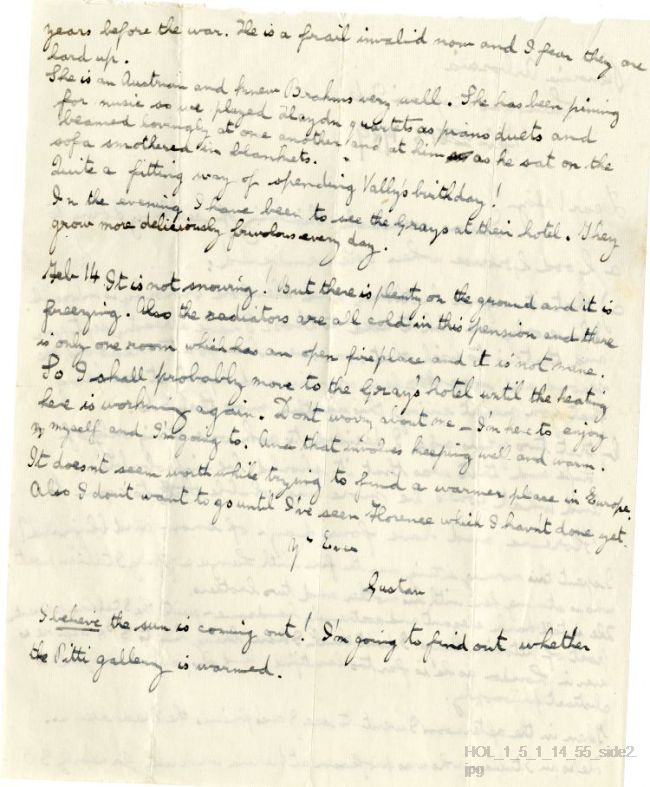 years before the war. He is a frail invalid now and I fear they are
hard up.
She is an Austrian and knew Brahms very well. She has been pining
for music so we played Haydn quartets as piano duets and
beamed lovingly at one another and at him as he sat on the
sofa smothered in blankets.
Quite a fitting way of spending Vally's birthday!
In the evening I have been to see the Grays at their hotel. They
grow more deliciously frivolous every day.
Feb 14 It is not snowing! But there is plenty on the ground and it is
freezing. Also the radiators are all cold in this pension and there
is only one room which has an open fireplace and it is not mine.
So I shall probably move to the Gray's hotel until the heating
here is working again. Don't worry about me – I'm here to enjoy
myself and I'm going to. And that involves keeping well and warm.
It doesn't seem worth while trying to find a warmer place in Europe.
Also I don't want to go until I've seen Florence which I havn't done yet.
Yrs Ever
Gustav
I believe the sun is coming out! I'm going to find out whether
the Pitti gallery is warmed.
HOL_1_5_1_14_55_side2.
jpg